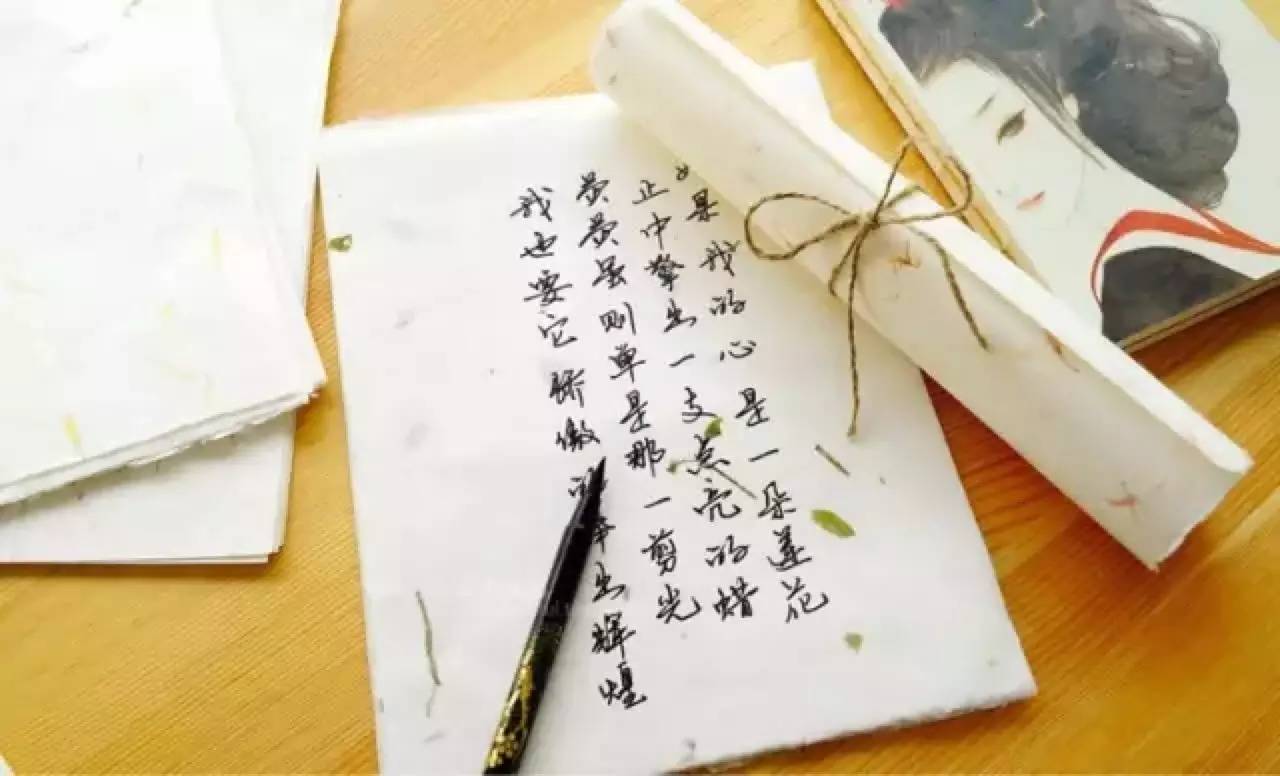 果我的心是一朵莲花
正中擎出一支点亮的蜡
荧荧虽则单是那一剪光
我也要它骄傲的出辉煌